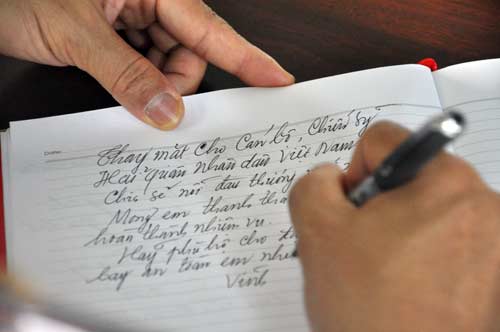 Thay mặt cho Cán bộ, Chiến sỹ
Hải quân Nhân dân Việt Nam
Chia sẻ nỗi đau thương
Mong em thanh thả
hoàn thành nhiệm vụ
Hãy phù hộ cho
bay an toàn em
Vĩnh